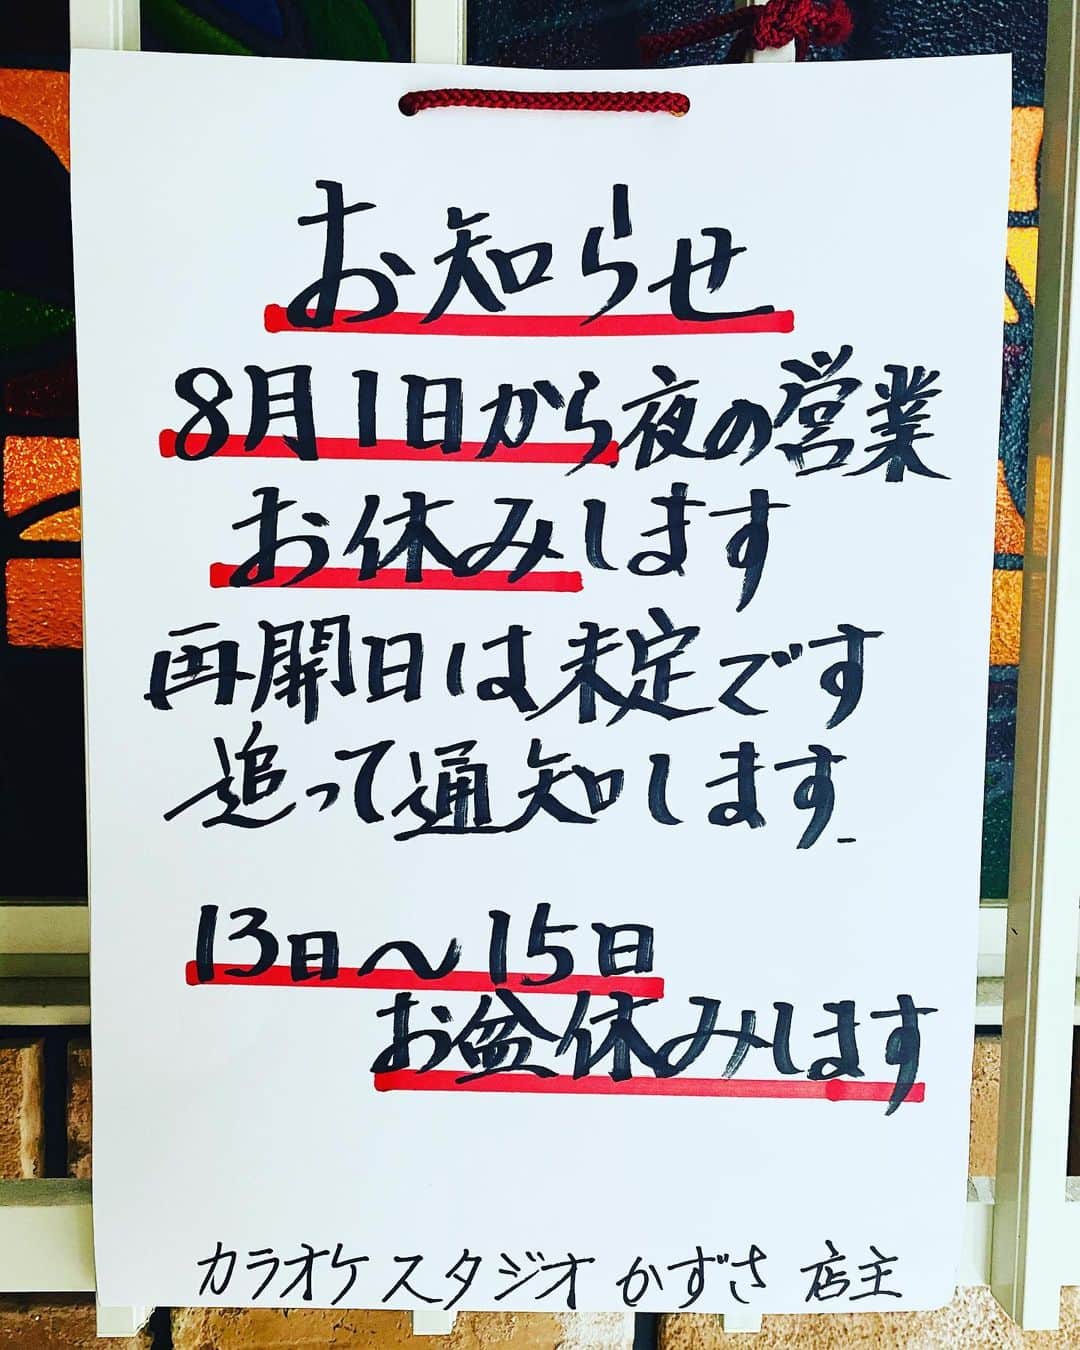 お知らせ
8月1日から夜の営業
お休みします
再開日は未定です
追って通知します
13日〜15日
お盆休みします
カラオケ スタジオ かずさ 店主